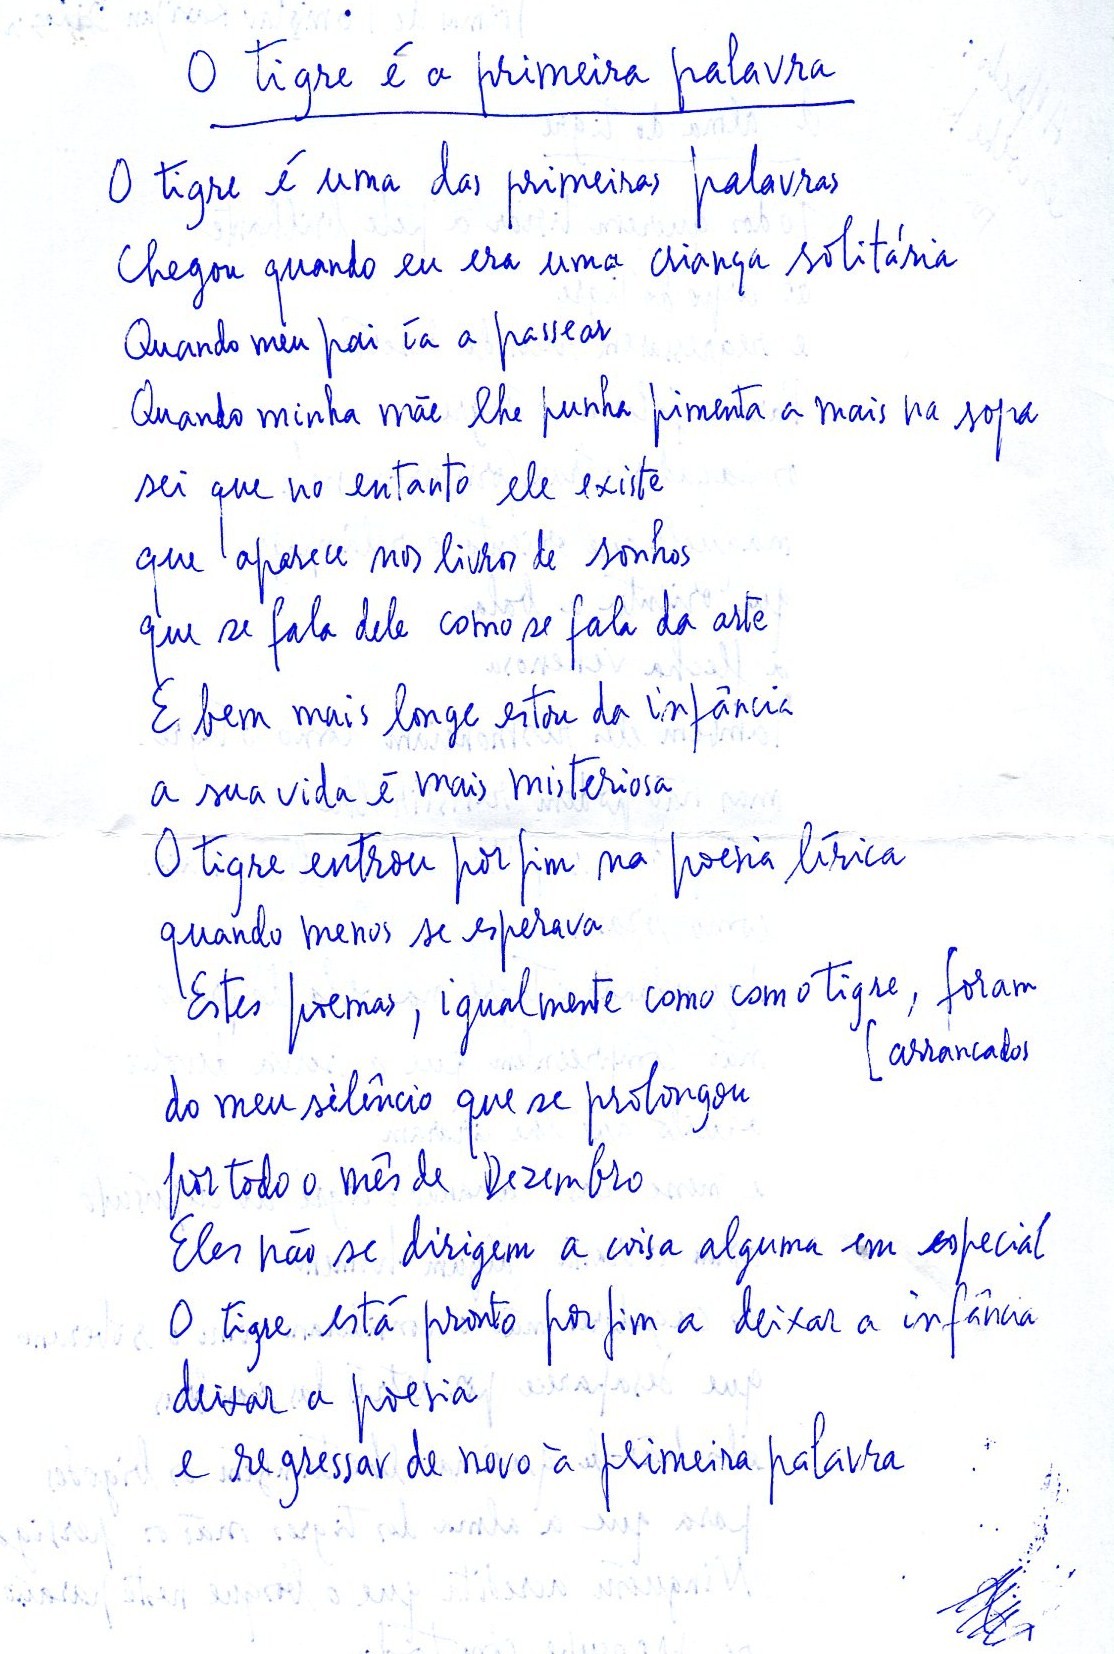 O tigre é a primeira palavra
O tigre é uma das primeiras palavras
Chegou quando eu era uma criança solitária
Quando meu pai ia a passear
Quando minha mãe lhe punha pimenta a mais na sopa
sei que no entanto ele existe
que aparece nos livros de sonhos
que se fala dele como se fala da arte
E bem mais longe estou da infância
a sua vida é mais misteriosa
O tigre entrou por fim na poesia lírica
quando menos se esperava
Estes poemas, igualmente como com o tigre, foram
[arrancados
do meu silêncio que se prolongou
por todo o mês de Dezembro
Eles não se dirigem a coisa alguma em especial
O tigre está pronto por fim a deixar a infância
deixar a poesia
e regressar de novo à primeira palavra